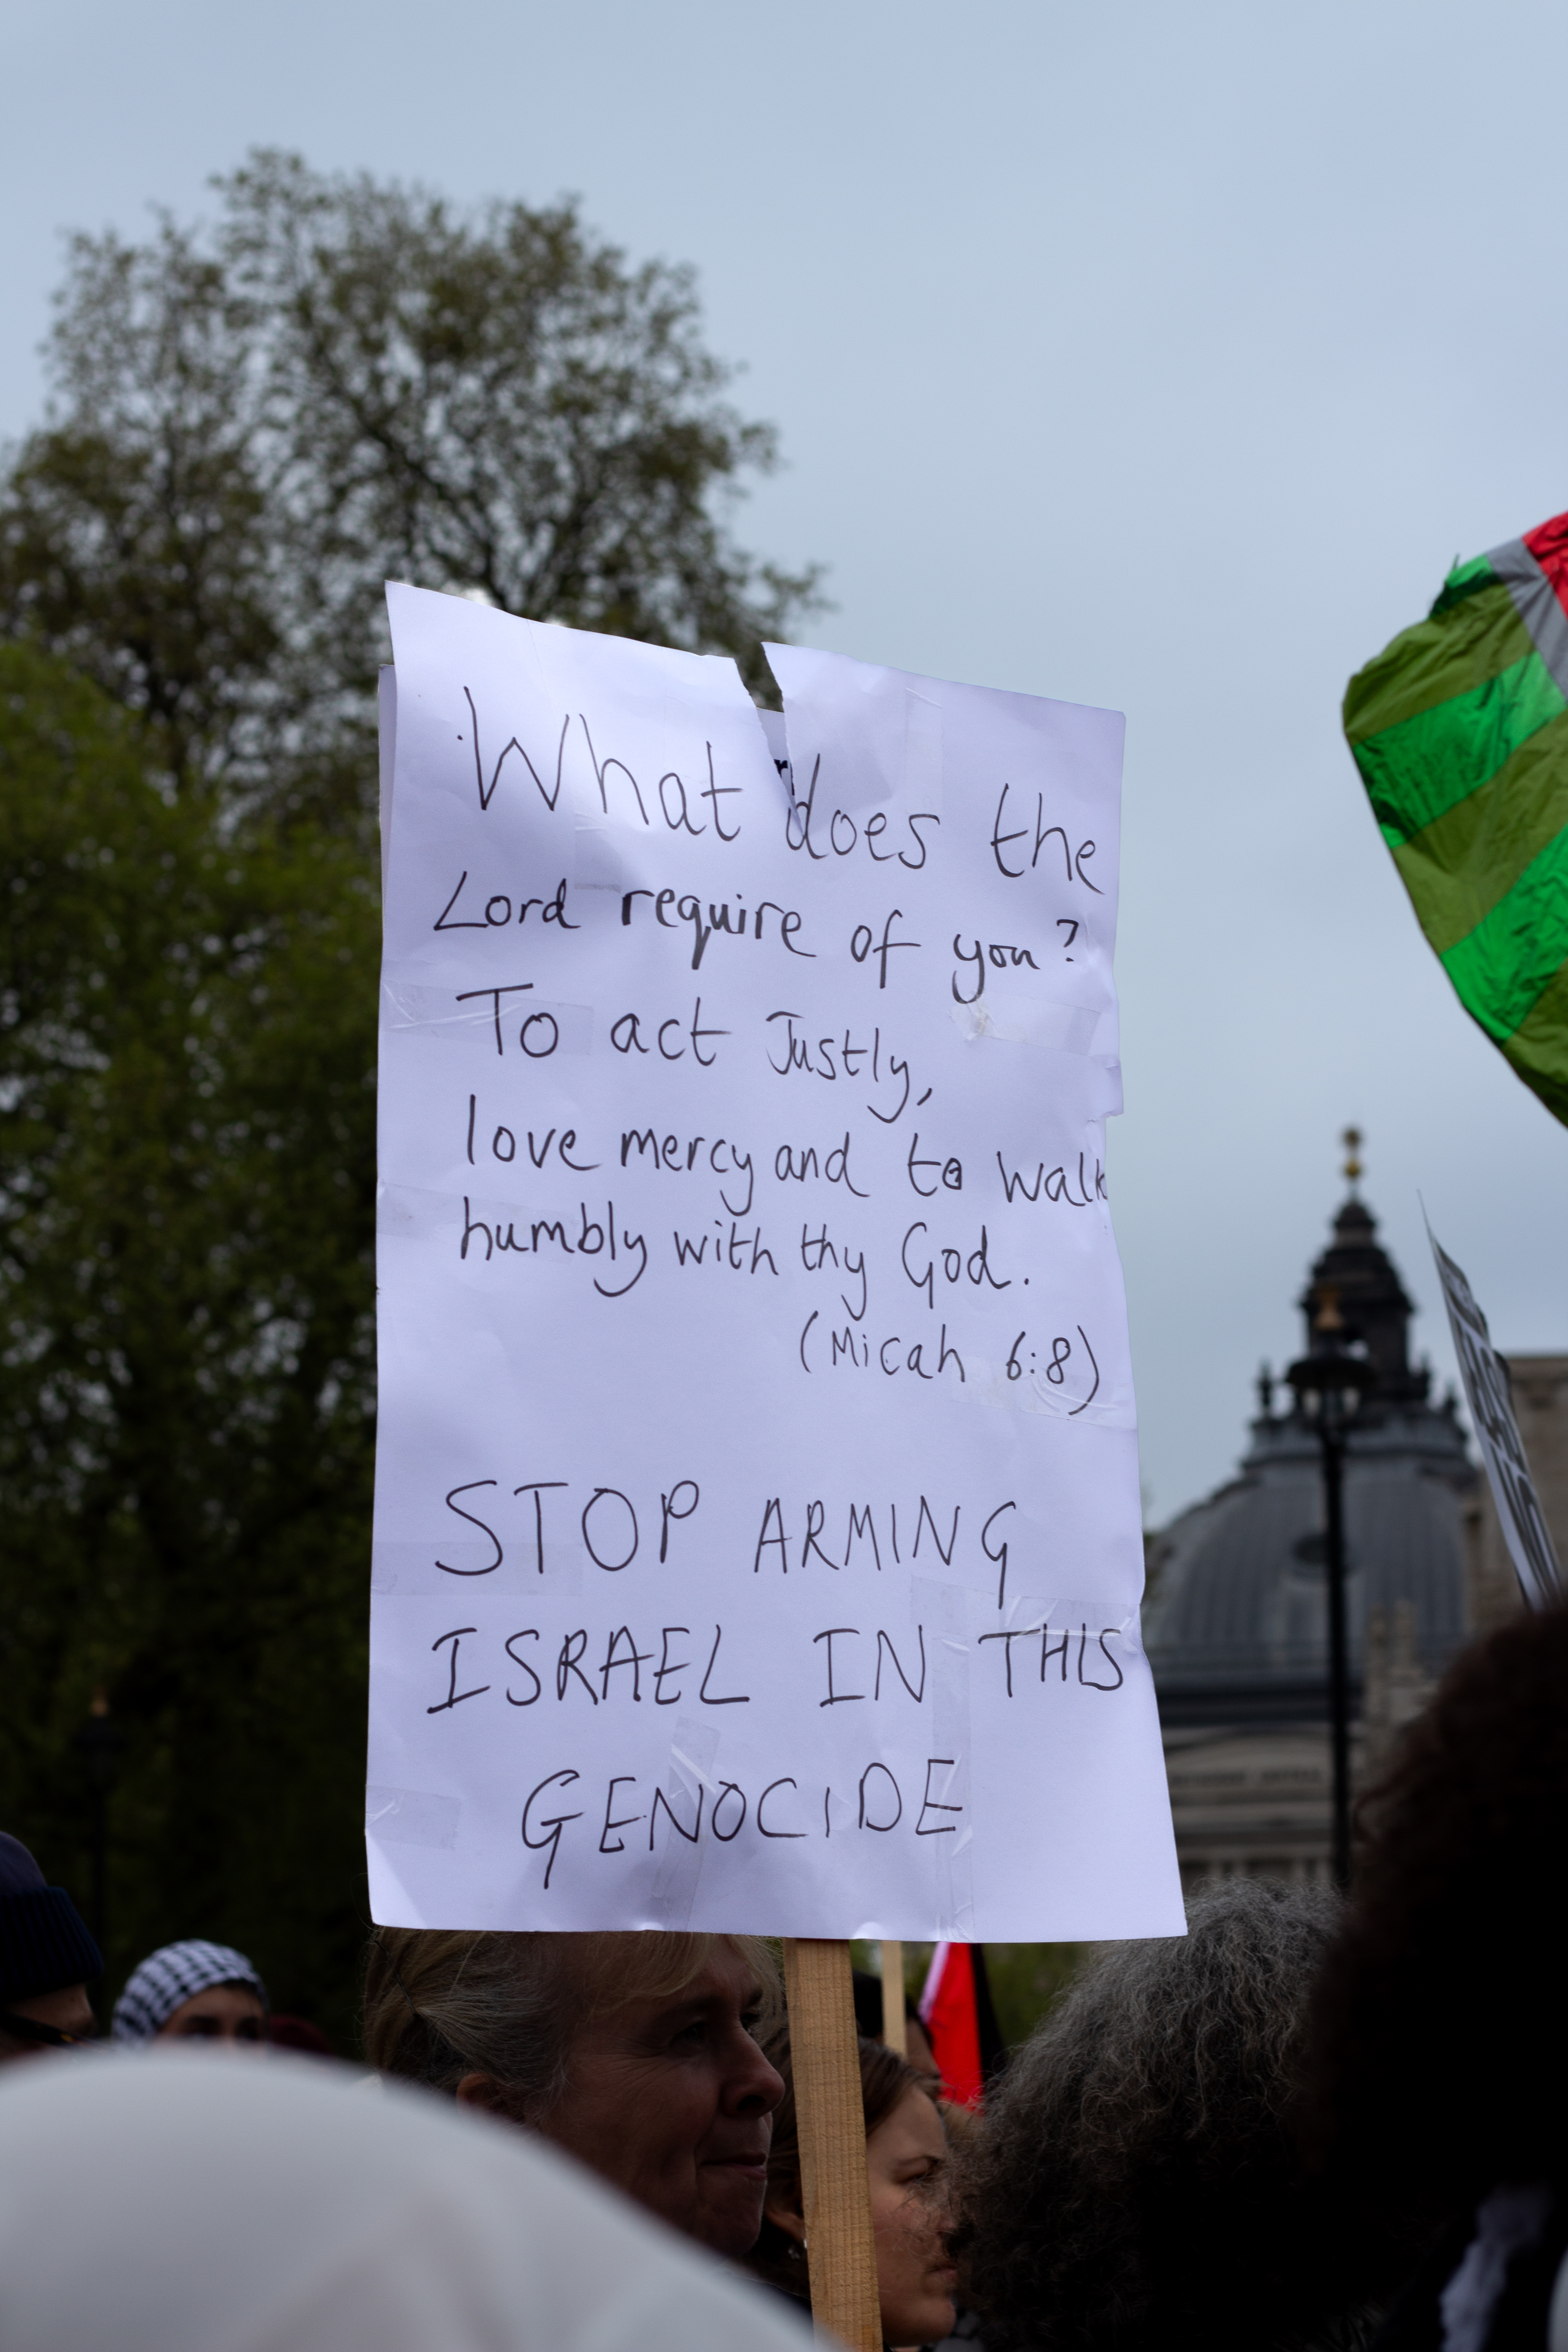 What does the
Lord require of you?
To act Justly,
love mercy and to walk
humbly with thy God.
(Micah 6:8)
STOP ARMING
ISRAEL IN THIS
GENOCIDE